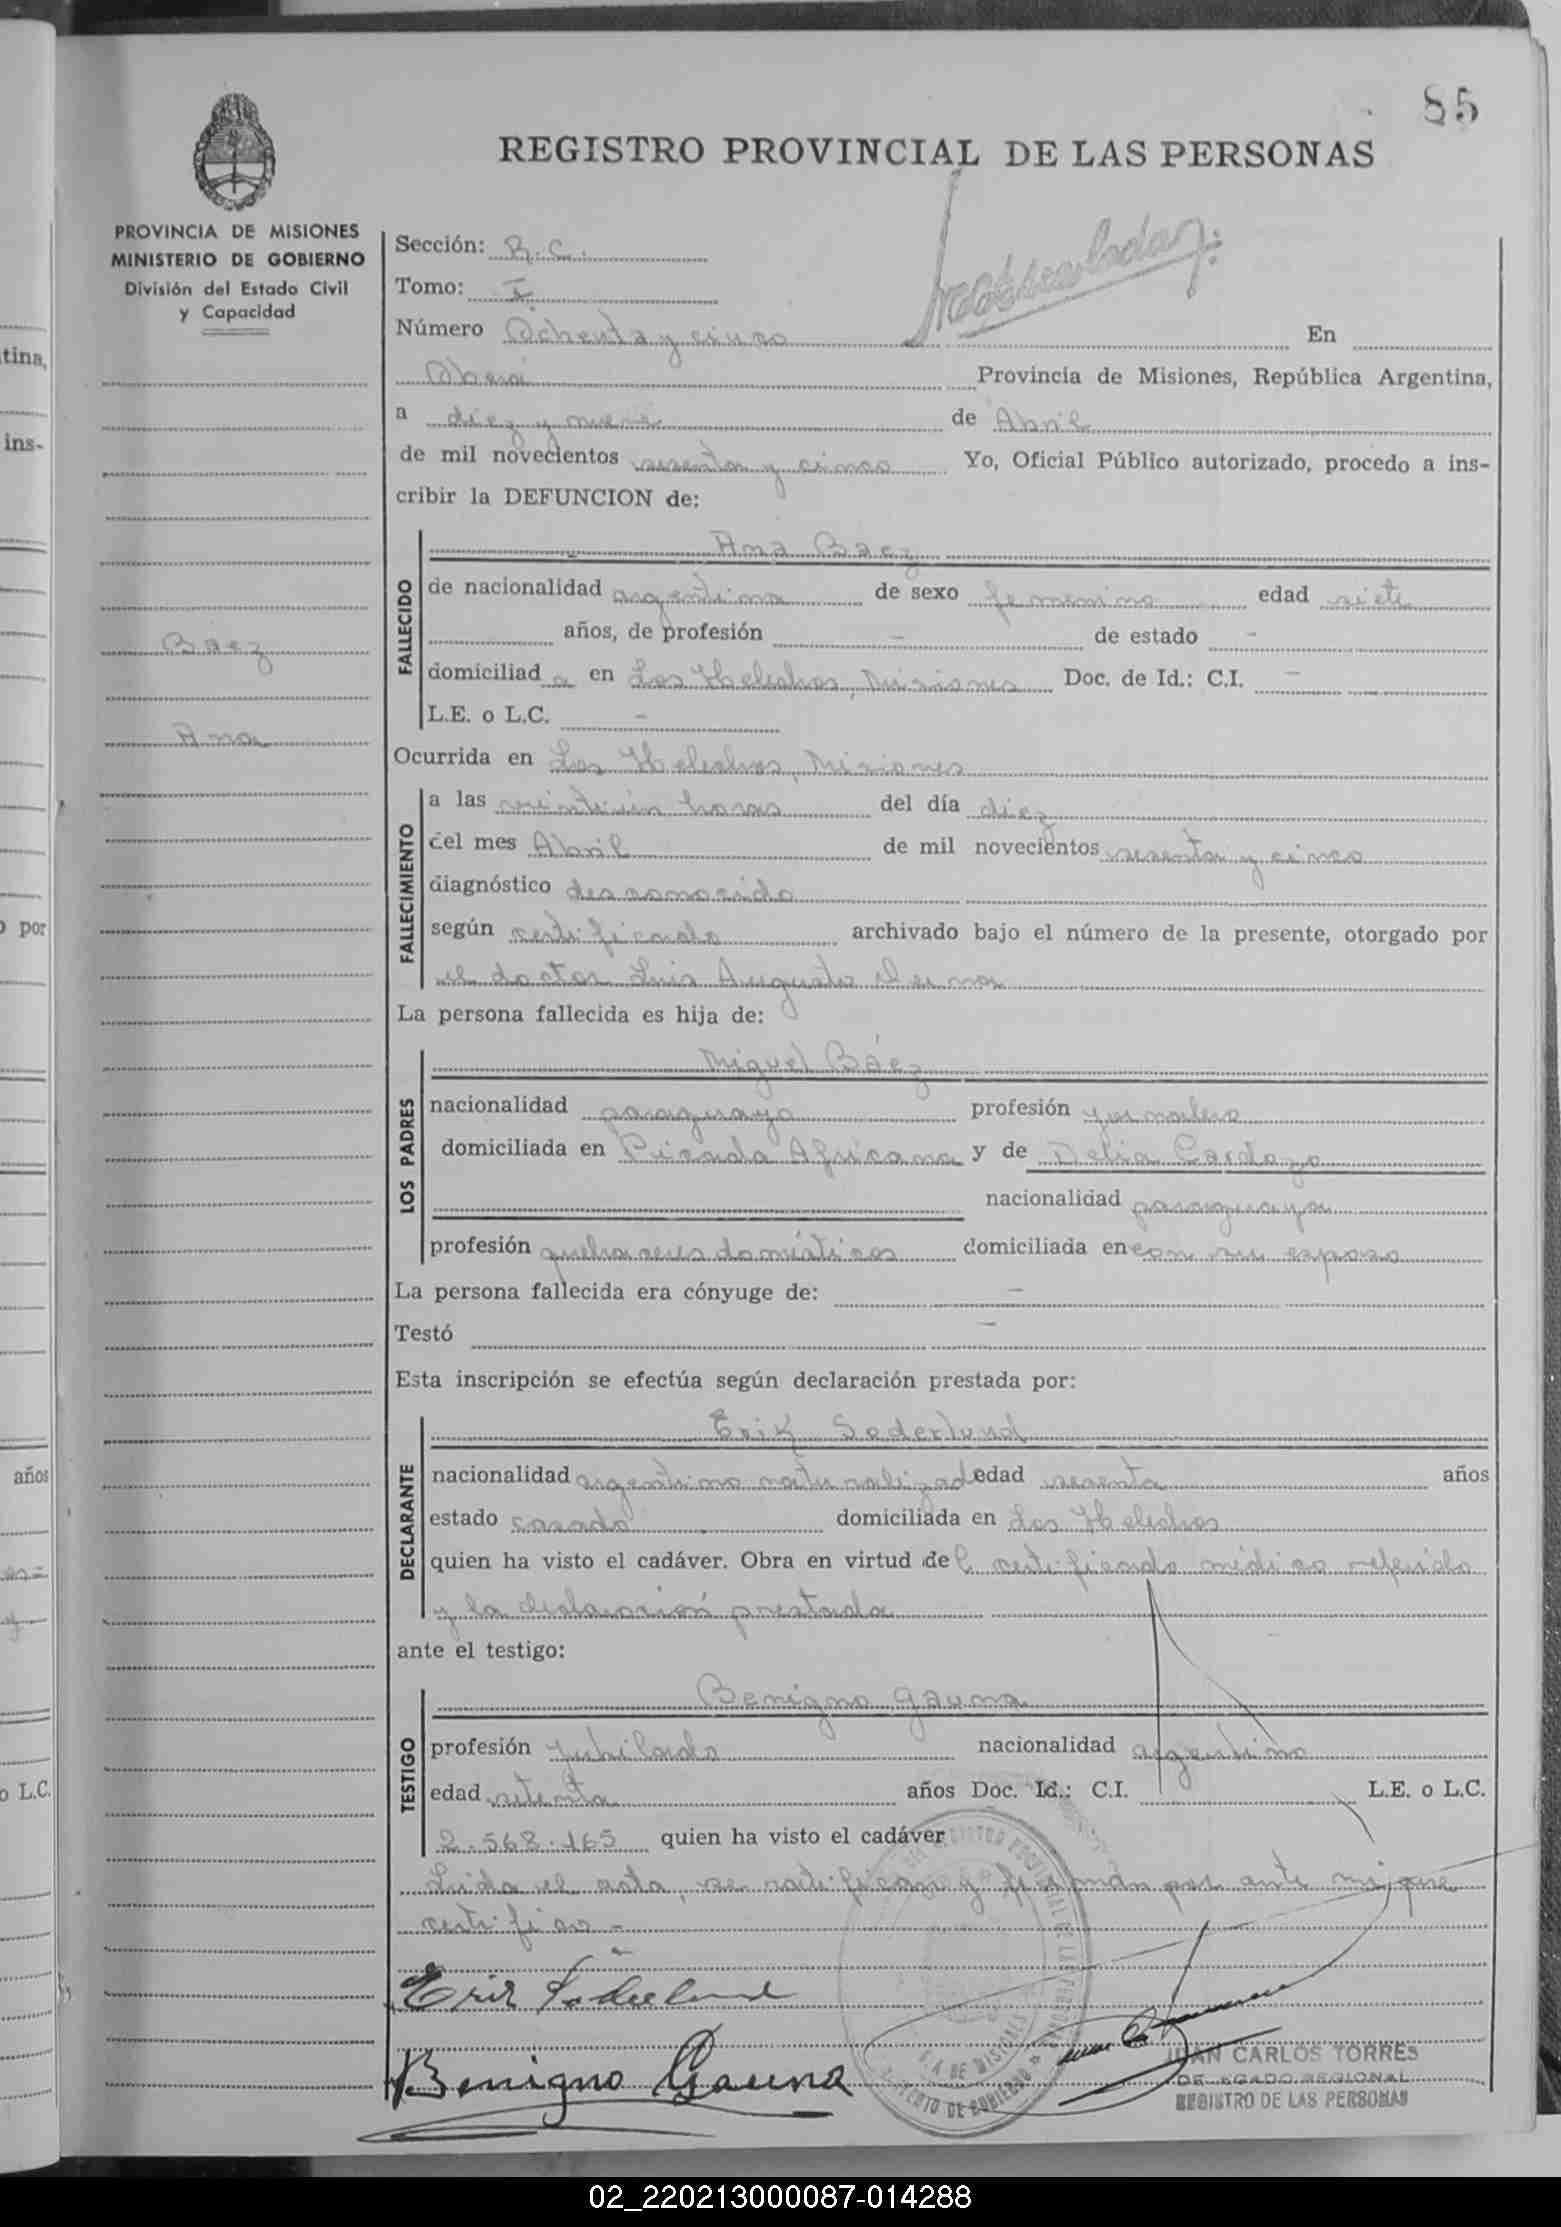 85
REGISTRO PROVINCIAL DE LAS PERSONAS
PROVINCIA DE MISIONES
MINISTERIO DE GOBIERNO
División del Estado Civil
y Capacidad
Báez
Ana
Sección: R. C.
Tomo: I
Número Ochenta y cinco En
Oberá Provincia de Misiones, República Argentina,
a diez y nueve de Abril
de mil novecientos sesenta y cinco Yo, Oficial Público autorizado, procedo a ins-
cribir la DEFUNCION de:
Ana Baez
FALLECIDO
de nacionalidad argentina de sexo femenino edad siete
años, de profesión - de estado -
domiciliad a en Los Helechos, Misiones Doc. de Id.: C.I. -
L.E. o L.C. -
Ocurrida en Los Helechos, Misiones
FALLECIMIENTO
a las veintiún horas del día diez
del mes Abril de mil novecientos sesenta y cinco
diagnóstico desconocido
según certificado archivado bajo el número de la presente, otorgado por
el doctor Luis Augusto
La persona fallecida es hija de:
LOS PADRES
Miguel Báez
nacionalidad paraguayo profesión jornalero
domiciliada en Picada Africana y de Delia Cardozo
nacionalidad paraguaya
profesión quehaceres domésticos domiciliada en con su esposo
La persona fallecida era cónyuge de: -
Testó -
Esta inscripción se efectúa según declaración prestada por:
DECLARANTE
Erik Soderlund
nacionalidad argentino naturalizad edad sesenta años
estado casado domiciliada en Los Helechos
quien ha visto el cadáver. Obra en virtud de l certificado médico referido
y la declaración prestada
ante el testigo:
TESTIGO
Benigno Gauna
profesión Jubilado nacionalidad argentino
edad setenta años Doc. Id.: C.I. L.E. o L.C.
2.568.165 quien ha visto el cadáver
Leida el acta, se ratifican y firman por ante mi, que
certifico -
Erik Söderlund
Benigno Gauna
JUAN CARLOS TORRES
DELEGADO REGIONAL
REGISTRO DE LAS PERSONAS
02_220213000087-014288